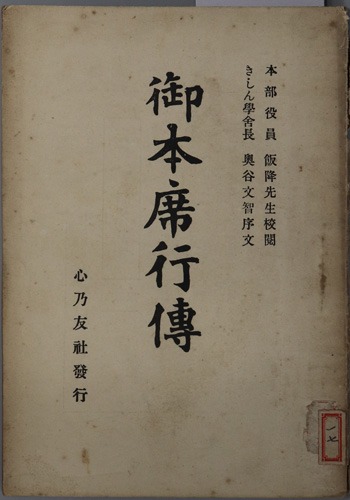 本部役員 飯降先生校閲
きしん學舍長 奧谷文智序文
御本席行傳
心乃友社發行
一七